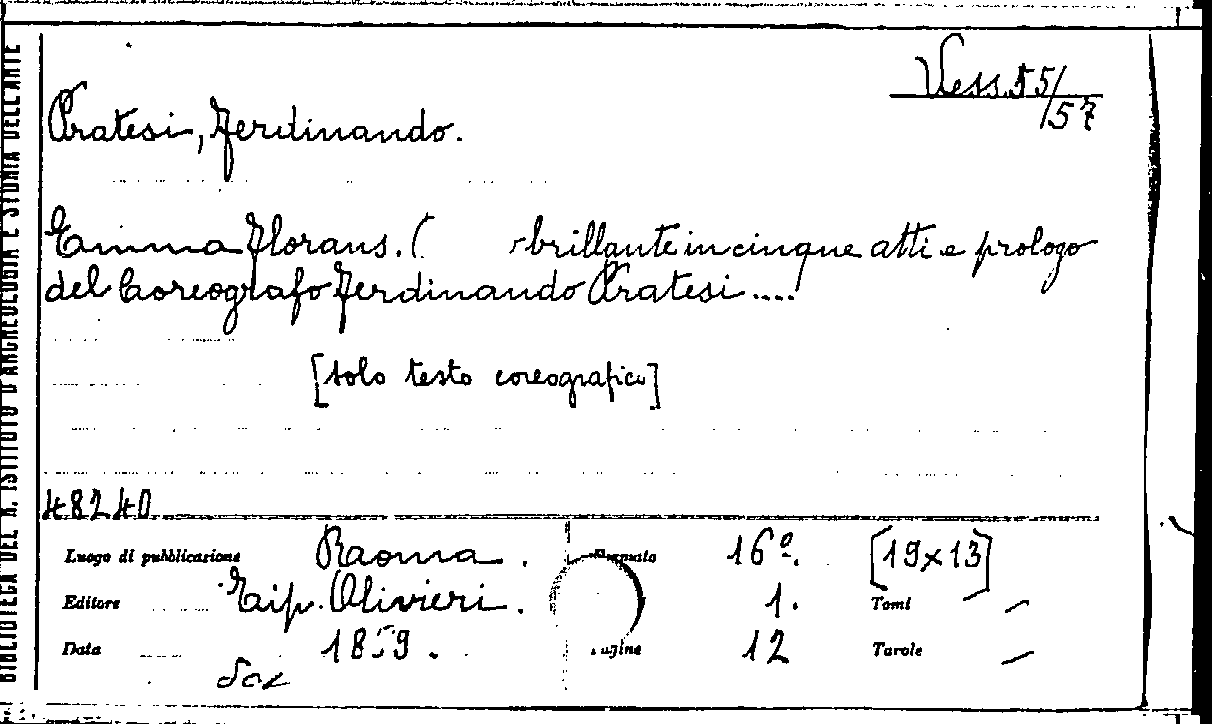 BIBLIOTECA DEL R. ISTITUTO D'ARCHEOLOGIA E STORIA DELL'ARTE
Vess. 55/57
Pratesi, Ferdinando.
Emma Florans. ( brillante in cinque atti e prologo
del Coreografo Ferdinando Pratesi ....
[solo testo coreografico]
48240
Luogo di pubblicazione Raoma. 16º. [19x13]
Editore Tip. Olivieri. 1. Tomi —
Data 1859. 12 Tavole —